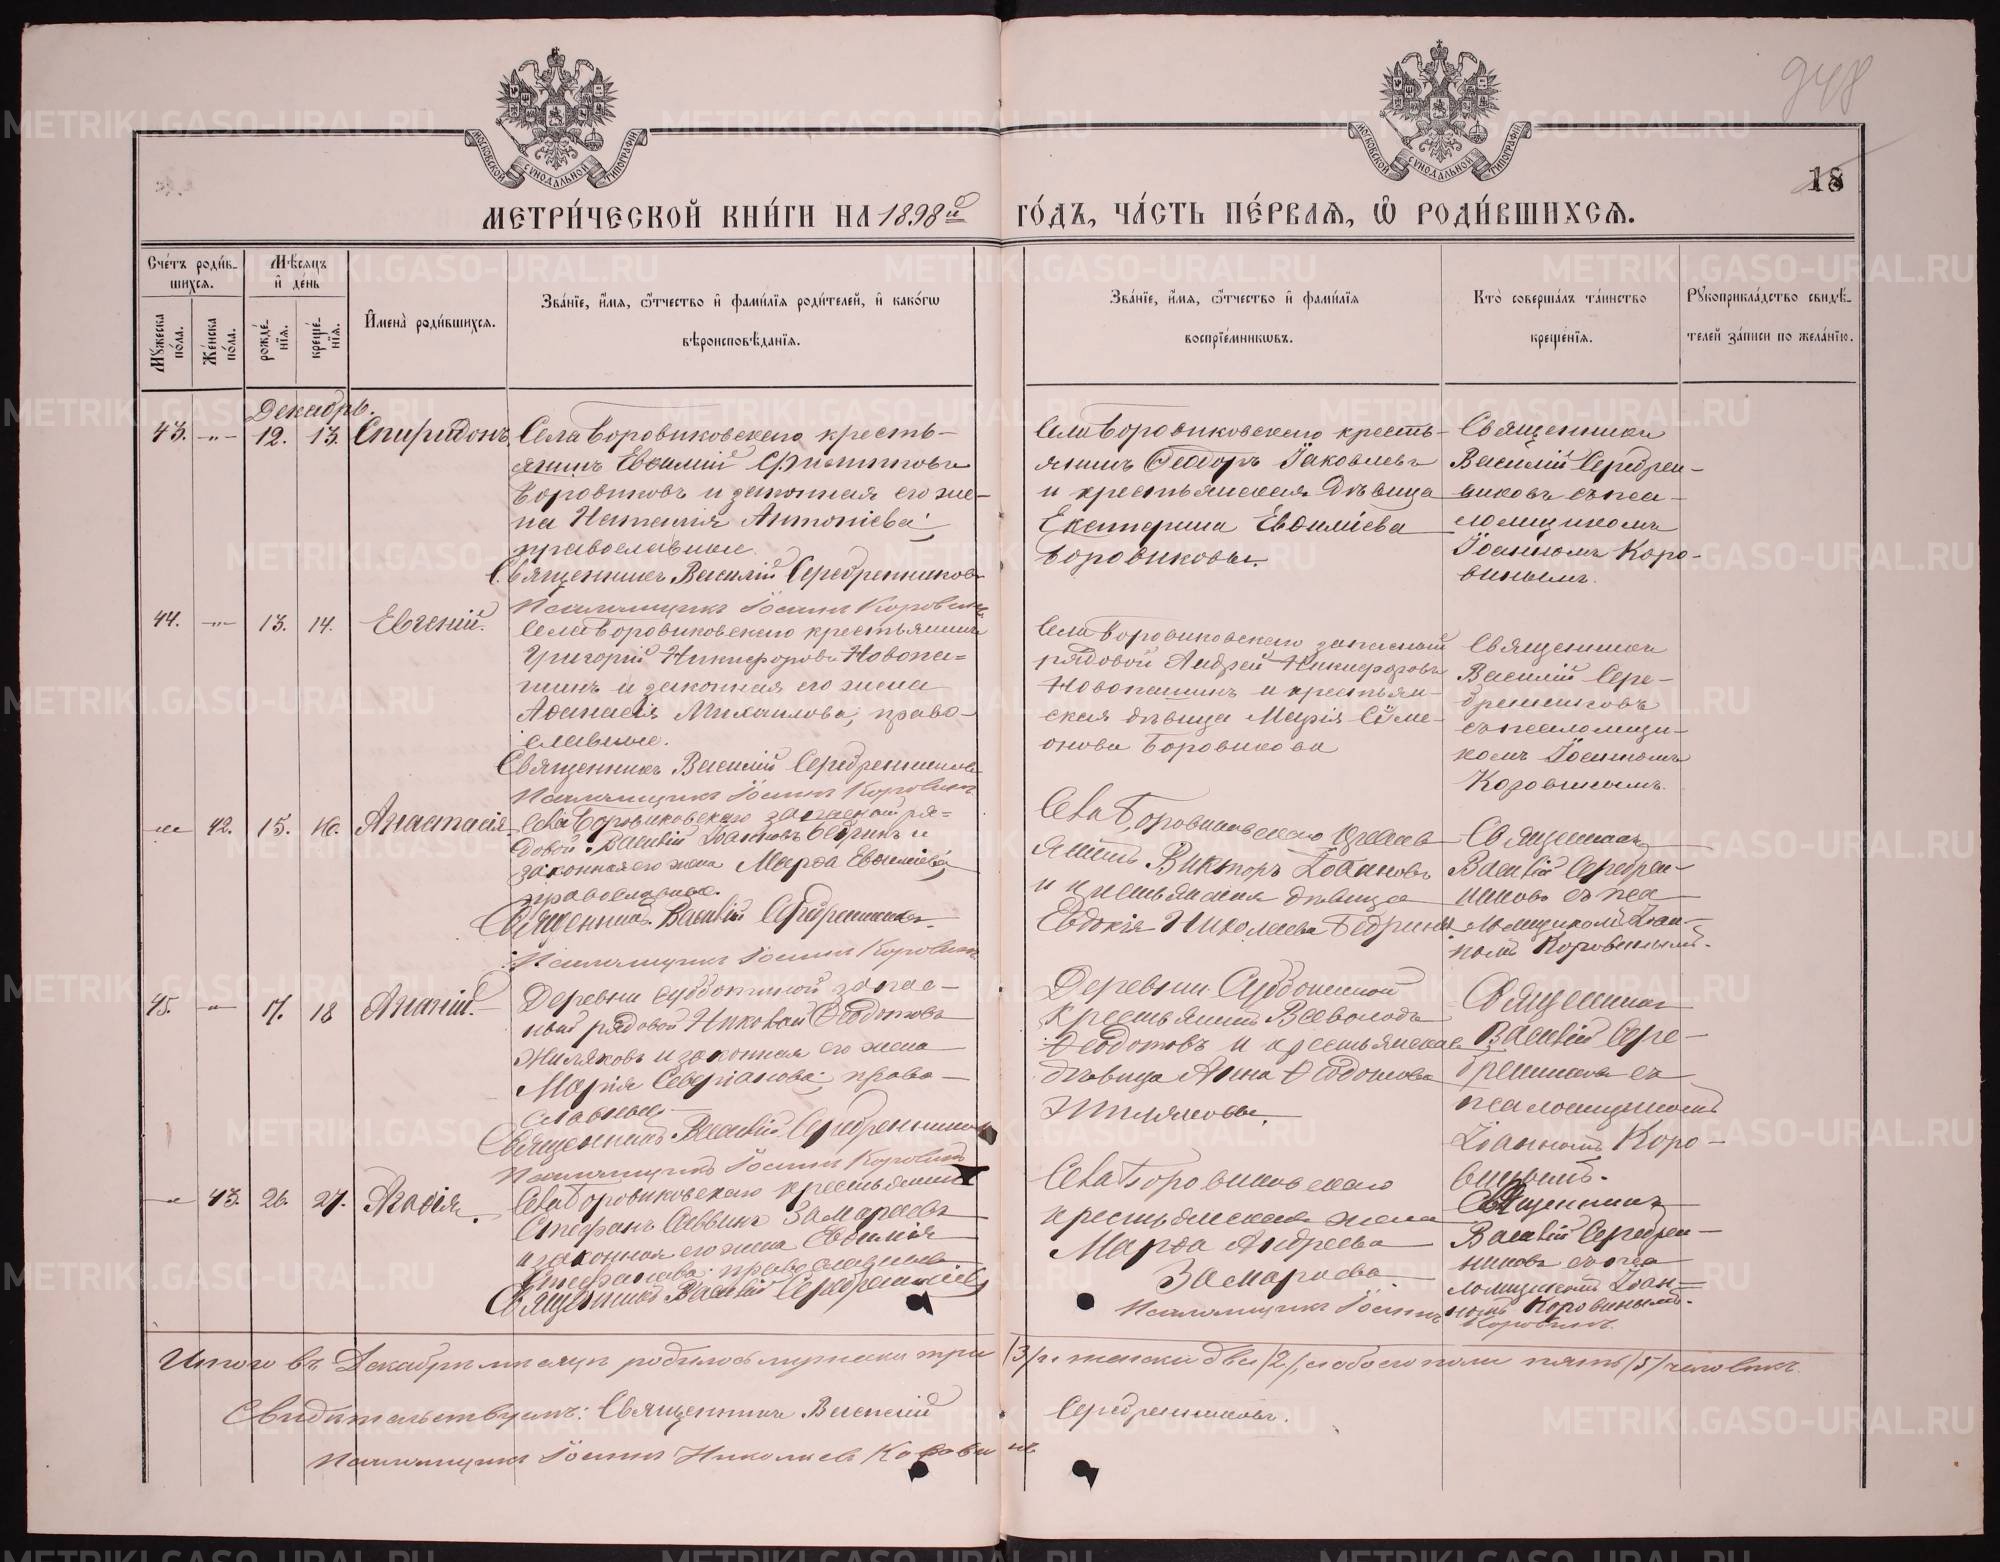 948
18
МОСКОВСКОЙ СѴНОДАЛЬНОЙ ТИПОГРАФІИ
МОСКОВСКОЙ СѴНОДАЛЬНОЙ ТИПОГРАФІИ
МЕТРИ́ЧЕСКОЙ КНИ́ГИ НА 1898й ГО́ДЪ, ЧА́СТЬ ПЕ́РВАѦ, Ѡ РОДИ́ВШИХСѦ.
Сче́тъ роди́в-
шихсѧ.
Мꙋ́жеска по́ла.
Же́нска по́ла.
Мѣ́сѧцъ
и҆ де́нь
рожде́-
нїѧ.
креще́-
нїѧ.
И҆мена̀ роди́вшихсѧ.
Зва́нїе, и҆́мѧ, ѻ҆́тчество и҆ фами́лїѧ роди́телей, и҆ како́гѡ
вѣроисповѣ́данїѧ.
Зва́нїе, и҆́мѧ, ѻ҆́тчество и҆ фами́лїѧ
воспрїе́мникѡвъ.
Кто̀ соверша́лъ та́инство
креще́нїѧ.
Рꙋкоприкла́дство свидѣ́-
телей за́писи по жела́нїю.
Декабрь.
43. -"- 12. 13. Спиридонъ
Села Боровиковскаго кресть-
янинъ Евѳимій Филипповъ
Боровиковъ и законная его же-
на Наталія Антоніева;
православные.
Священникъ Василій Серебренниковъ
Псаломщикъ Іоаннъ Коровинъ
Села Боровиковскаго кресть-
янинъ Ѳеодоръ Іаковлевъ
и крестьянская дѣвица
Екатерина Евѳиміева
Боровиковы.
Священникъ
Василій Серебрен-
никовъ съ пса-
ломщикомъ
Іоанномъ Коро-
винымъ.
44. -"- 13. 14. Евгеній.
Села Боровиковскаго крестьянинъ
Григорій Никифоровъ Новопа-
шинъ и законная его жена
Аѳанасія Михаилова; право-
славные.
Священникъ Василій Серебренниковъ
Псаломщикъ Іоаннъ Коровинъ
Села Боровиковскаго запасный
рядовой Андрей Никифоровъ
Новопашинъ и крестьян-
ская дѣвица Марія Симе-
онова Боровикова
Священникъ
Василій Сере-
бренниковъ
съ псаломщи-
комъ Іоанномъ
Коровинымъ.
-"- 42. 15. 16. Анастасія
Села Боровиковскаго запасной ря-
довой Василій Іоанновъ Бедринъ и
законная его жена Марѳа Евѳиміева;
православные.
Священникъ Василій Серебренниковъ
Псаломщикъ Іоаннъ Коровинъ
Села Боровиковскаго крестья-
янинъ Викторъ Іоанновъ
и крестьянская дѣвица
Евдокія Николаева Бедрины
Священникъ
Василій Серебрен-
никовъ съ пса-
ломщикомъ Іоан-
номъ Коровинымъ.
45. -"- 17. 18 Ананій.
Деревни Субботиной запас-
ный рядовой Николай Ѳеодотовъ
Жиляковъ и законная его жена
Марія Северіанова; право-
славные
Священникъ Василій Серебренниковъ
Псаломщикъ Іоаннъ Коровинъ
Деревни Субботиной
крестьянинъ Всеволодъ
Ѳеодотовъ и крестьянская
дѣвица Анна Ѳеодотова
Жиляковы.
Священникъ
Василій Сере-
бренниковъ съ
псаломщикомъ
Іоанномъ Коро-
винымъ.
-"- 43. 26. 27. Агаѳія.
Села Боровиковскаго крестьянинъ
Стефанъ Саввинъ Замараевъ
и законная его жена Евѳимія
Стефанова; православные
Священникъ Василій Серебренниковъ
Села Боровиковскаго
крестьянская жена
Марѳа Андреева
Замараева.
Псаломщикъ Іоаннъ Коровинъ.
Священникъ
Василій Серебрен-
никовъ съ пса-
ломщикомъ Іоан-
номъ Коровинымъ.
Итого въ Декабрѣ мѣсяцѣ родилось мужска три /3/ и женска два /2/, а обоего пола пять /5/ человѣкъ.
Свидѣтельствуемъ: Священникъ Василій Серебренниковъ.
Псаломщикъ Іоаннъ Николаевъ Коровинъ
METRIKI.GASO-URAL.RU